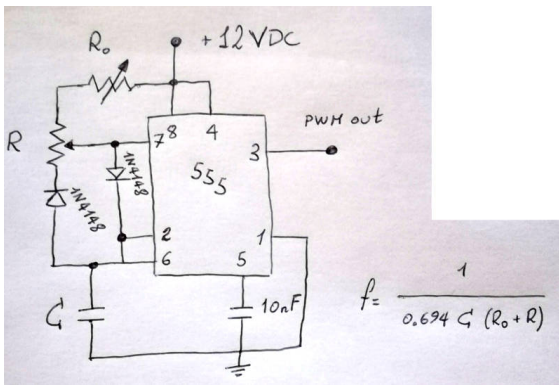 R₀
+12 VDC
PWM out
R
7
8
4
3
555
1N4148
1N4148
2
6
1
5
C₁
10nF
f= 1
0.694 C₁ (R₀ + R)